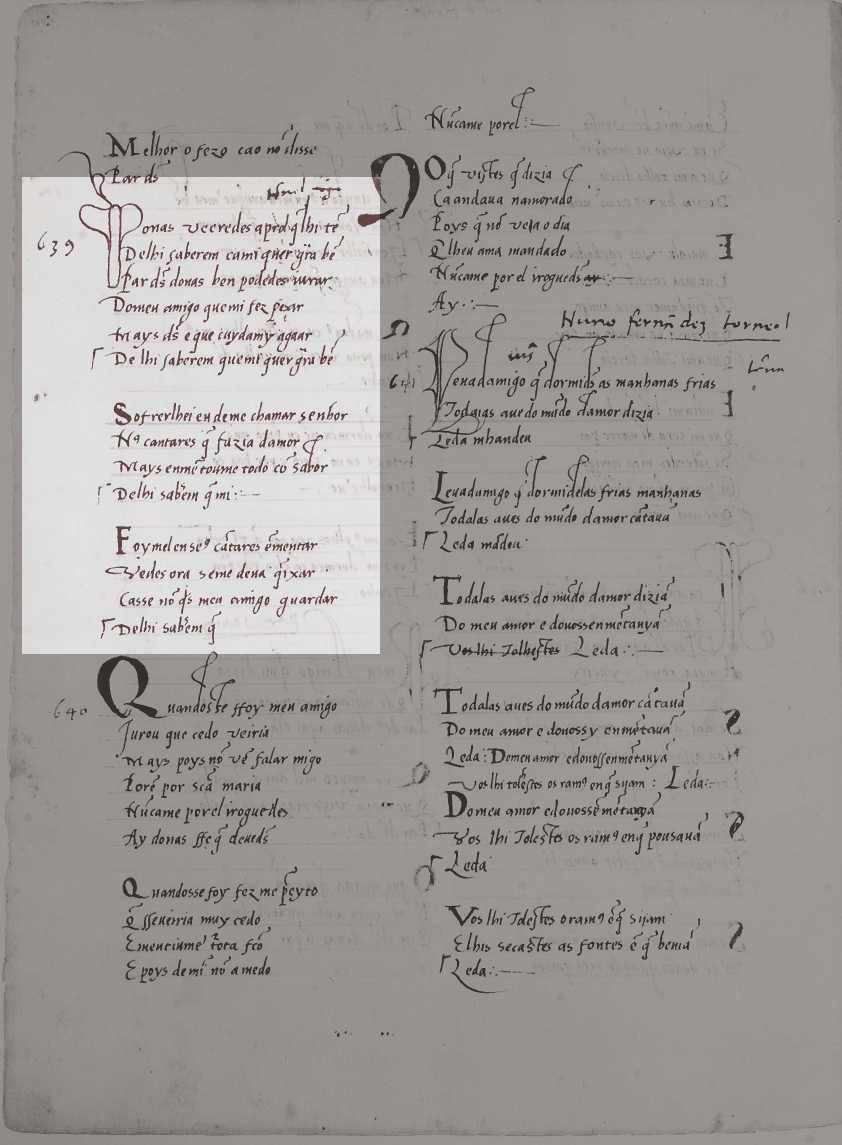 Melhor o fezo cao nō disse
Par ds̄
639
Donas ueeredes a prol q̄ lhi tē
Delhi saberem cami quer grā bē
Par ds̄ donas ben podedes iurar
Domeu amigo quemi fez pesar
Mays ds̄ e que cuydamy aguar
De lhi saberem quemi quer grā bē
Sofrerlhei eu deme chamar senhor
Nos cantares q̄ fazia damor
Mays enmētoume todo cō sabor
Delhi sabēm q̄ mi
Foymelensens cātares ēmentar
Vedes ora seme deua q̄ixar
Casse nō q̄s meu amigo guardar
Delhi sabēm q̄
640
Quandosse ffoy meu amigo
Jurou que cedo ueiria
Mays poys nō uē falar migo
Porē por scā maria
Nūcame por el rroguedes
Ay donas ffe q̄ deueds̄
Quandosse foy fezme p̄eyto
Q̄ sseueiria muy cedo
E mentiume tota fcō
E poys de mī nō a medo
Nūcame por el
O q̄ uistes q̄ dizia
Ca andaua namorado
Poys q̄ nō ueo o dia
Q̄ lheu ama mandado
Nūcame por el rrogueds̄
Ay
Nuno fernādez torneol
641
Leuadamigo q̄ dormides as manhanas frias
Todalas aues do mūdo damor dizia
Leda mhandeu
Leuadamigo q̄ dormidelas frias manhanas
Todalas aues do mūdo damor cātauā
Leda mādeu
Todalas aues do mūdo damor dizia
Do meu amor e douossenmētauyā
Vos lhi Tolhestes Leda
Todalas aues do mūdo damor cātauā
Do meu amor e douossy enmētauā
Leda Domeu amor edouossenmētauyā
Vos lhi tolēstes os ramos en q̄ sijam Leda
Do meu amor edouossēmētauā
Vos lhi Tolestes os ramos en q̄ pousauā
Leda
Vos lhi Tolestes o ramos ē q̄ sijam
E lhis secastes as fontes ē q̄ beuiā
Leda